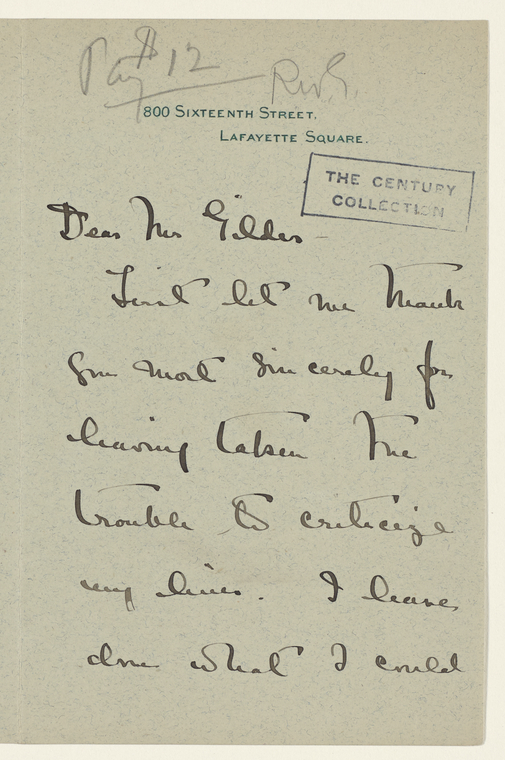 Pay $12
R.W.G.
800 Sixteenth Street,
Lafayette Square.
THE CENTURY
COLLECTION
Dear Mr Gilder –
First let me thank
you most sincerely for
having taken the
trouble to criticize
my lines. I have
done what I could